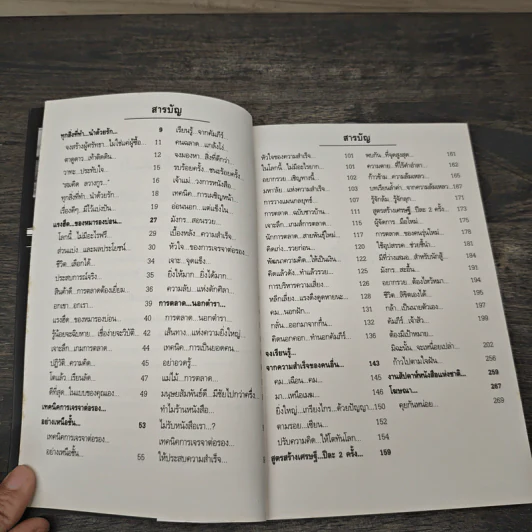 สารบัญ
ทุกสิ่งที่ทำ...นำด้วยรัก... 9
จงสร้างผู้ศรัทธา...ไม่ใช่แค่ผู้ซื้อ... 11
ตาดูดาว...เท้าติดดิน... 12
วาทะ...ประทับใจ... 15
"สมคิด ลวางกูร..." 16
ทุกสิ่งที่ทำ...นำด้วยรัก... 18
เรื่องดีๆ...มีไว้แบ่งปัน 19
แรงฮึด...ของหมารองบ่อน... 27
โลกนี้...ไม่มีอะไรฟรี... 29
ส่วนแบ่ง...และผลประโยชน์... 30
ชีวิต...เลือกได้... 34
ประสบการณ์จริง... 35
สินค้าดี...การตลาดต้องเยี่ยม... 36
อกเขา...อกเรา... 39
แรงฮึด...ของหมารองบ่อน... 40
รู้น้อยจะฉิบหาย...เชื่อง่ายจะวิบัติ... 42
เจาะลึก...เกมการตลาด... 44
ปฏิวัติ...ความคิด... 45
โตแล้ว...เรียนลัด... 47
ดีที่สุด...ในแบบของคุณเอง 49
เทคนิคการเจรจาต่อรอง...
อย่างเหนือชั้น... 53
เทคนิคการเจรจาต่อรอง...
อย่างเหนือชั้น... 55
เรียนรู้...จากคัมภีร์...
คนฉลาด...แกล้งโง่...
จงมองหา...สิ่งที่ดีกว่า...
รบร้อยครั้ง...ชนะร้อยครั้ง...
เจ้าแม่...วงการหนังสือ...
เทคนิค...การเผชิญหน้า...
อ่อนนอก...แต่แข็งใน...
มังกร...สอนรวย...
เบื้องหลัง...ความสำเร็จ...
หัวใจ...ของการเจรจาต่อรอง...
เจาะ...จุดแข็ง...
ยิ่งให้มาก...ยิ่งได้มาก...
ความลับ...แห่งศักดิ์ศิลา...
การตลาด...นอกตำรา...
การตลาด...นอกตำรา...
เส้นทาง...แห่งความยิ่งใหญ่...
เทคนิค...การเป็นยอดคน...
อย่าอวดรู้...
แม่ไม้...การตลาด...
มนุษยสัมพันธ์ดี...มีชัยไปกว่าครึ่ง
ทำไมร้านหนังสือ...
ไม่รับหนังสือเรา...?
เทคนิคการเจรจาต่อรอง...
ให้ประสบความสำเร็จ...
สารบัญ
หัวใจของความสำเร็จ... 101
ในโลกนี้...ไม่มีอะไรยาก... 101
อยากรวย...เชิญทางนี้ 102
มหาลัย...แห่งความสำเร็จ 103
การวางแผนกลยุทธ์... 103
การตลาด...ฉบับชาวบ้าน... 103
เจาะลึก...เกมส์การตลาด...
นักการตลาด...สายพันธุ์ใหม่...
คิดเก่ง...รวยก่อน...
พัฒนาความคิด...ให้เป็นเงิน...
คิดแล้วดัง...ทำแล้วรวย...
การบริหารความเสี่ยง...
หลีกเลี่ยง...แรงดึงดูดหายนะ...
คม...นอกฝัก...
กลั่น...ออกมาจากกึ๋น... 132
คิดนอกคอก...ทำนอกคัมภีร์ 136
จงเรียนรู้...
จากความสำเร็จของคนอื่น... 143
คม...เฉือน...คม... 145
มา...เหนือเมฆ... 146
ยิ่งใหญ่...เกรียงไกร...ด้วยปัญญา... 150
ตามรอย...เซียน... 152
ปรับความคิด...ให้โตทันโลก 154
สูตรสร้างเศรษฐี...ปีละ 2 ครั้ง... 159
คบกัน...ที่จุดสูงสุด... 161
ความตาย...ที่ไร้ค่าอำลา...
ก้าวข้าม...ความล้มเหลว...
บทเรียนล้ำค่า...จากความล้มเหลว... 167
รู้จักล้ม...รู้จักลุก... 171
สูตรสร้างเศรษฐี...ปีละ 2 ครั้ง... 173
ผู้จัดการ...มือใหม่... 175
การตลาด...ของคนรุ่นใหม่...
ใช้อุปสรรค...ช่วยชี้นำ...
มีที่ว่างเสมอ...สำหรับนักสู้...
มังกร...สะอื้น... 191
อยากรวย...ต้องไหว้หมา... 194
ชีวิต...ลิขิตเองได้... 195
กล้า...เป็นนายตัวเอง... 197
คัมภีร์...เจ้าสัว...
ต้องมีเป้าหมาย...
มิฉะนั้น...จะเหนื่อยเปล่า... 202
ก้าวไปตามใจฝัน... 256
งานสัปดาห์หนังสือแห่งชาติ... 259
โฆษณา... 267
คุยกันหน่อย... 269